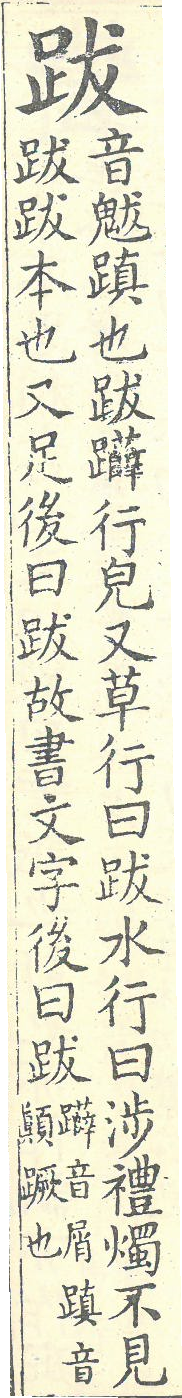 跋
音魃蹎也跋躠行皃又草行曰跋水行曰涉禮燭不見
跋跋本也又足後曰跋故書文字後曰跋
躠音屑蹎音
顛蹶也